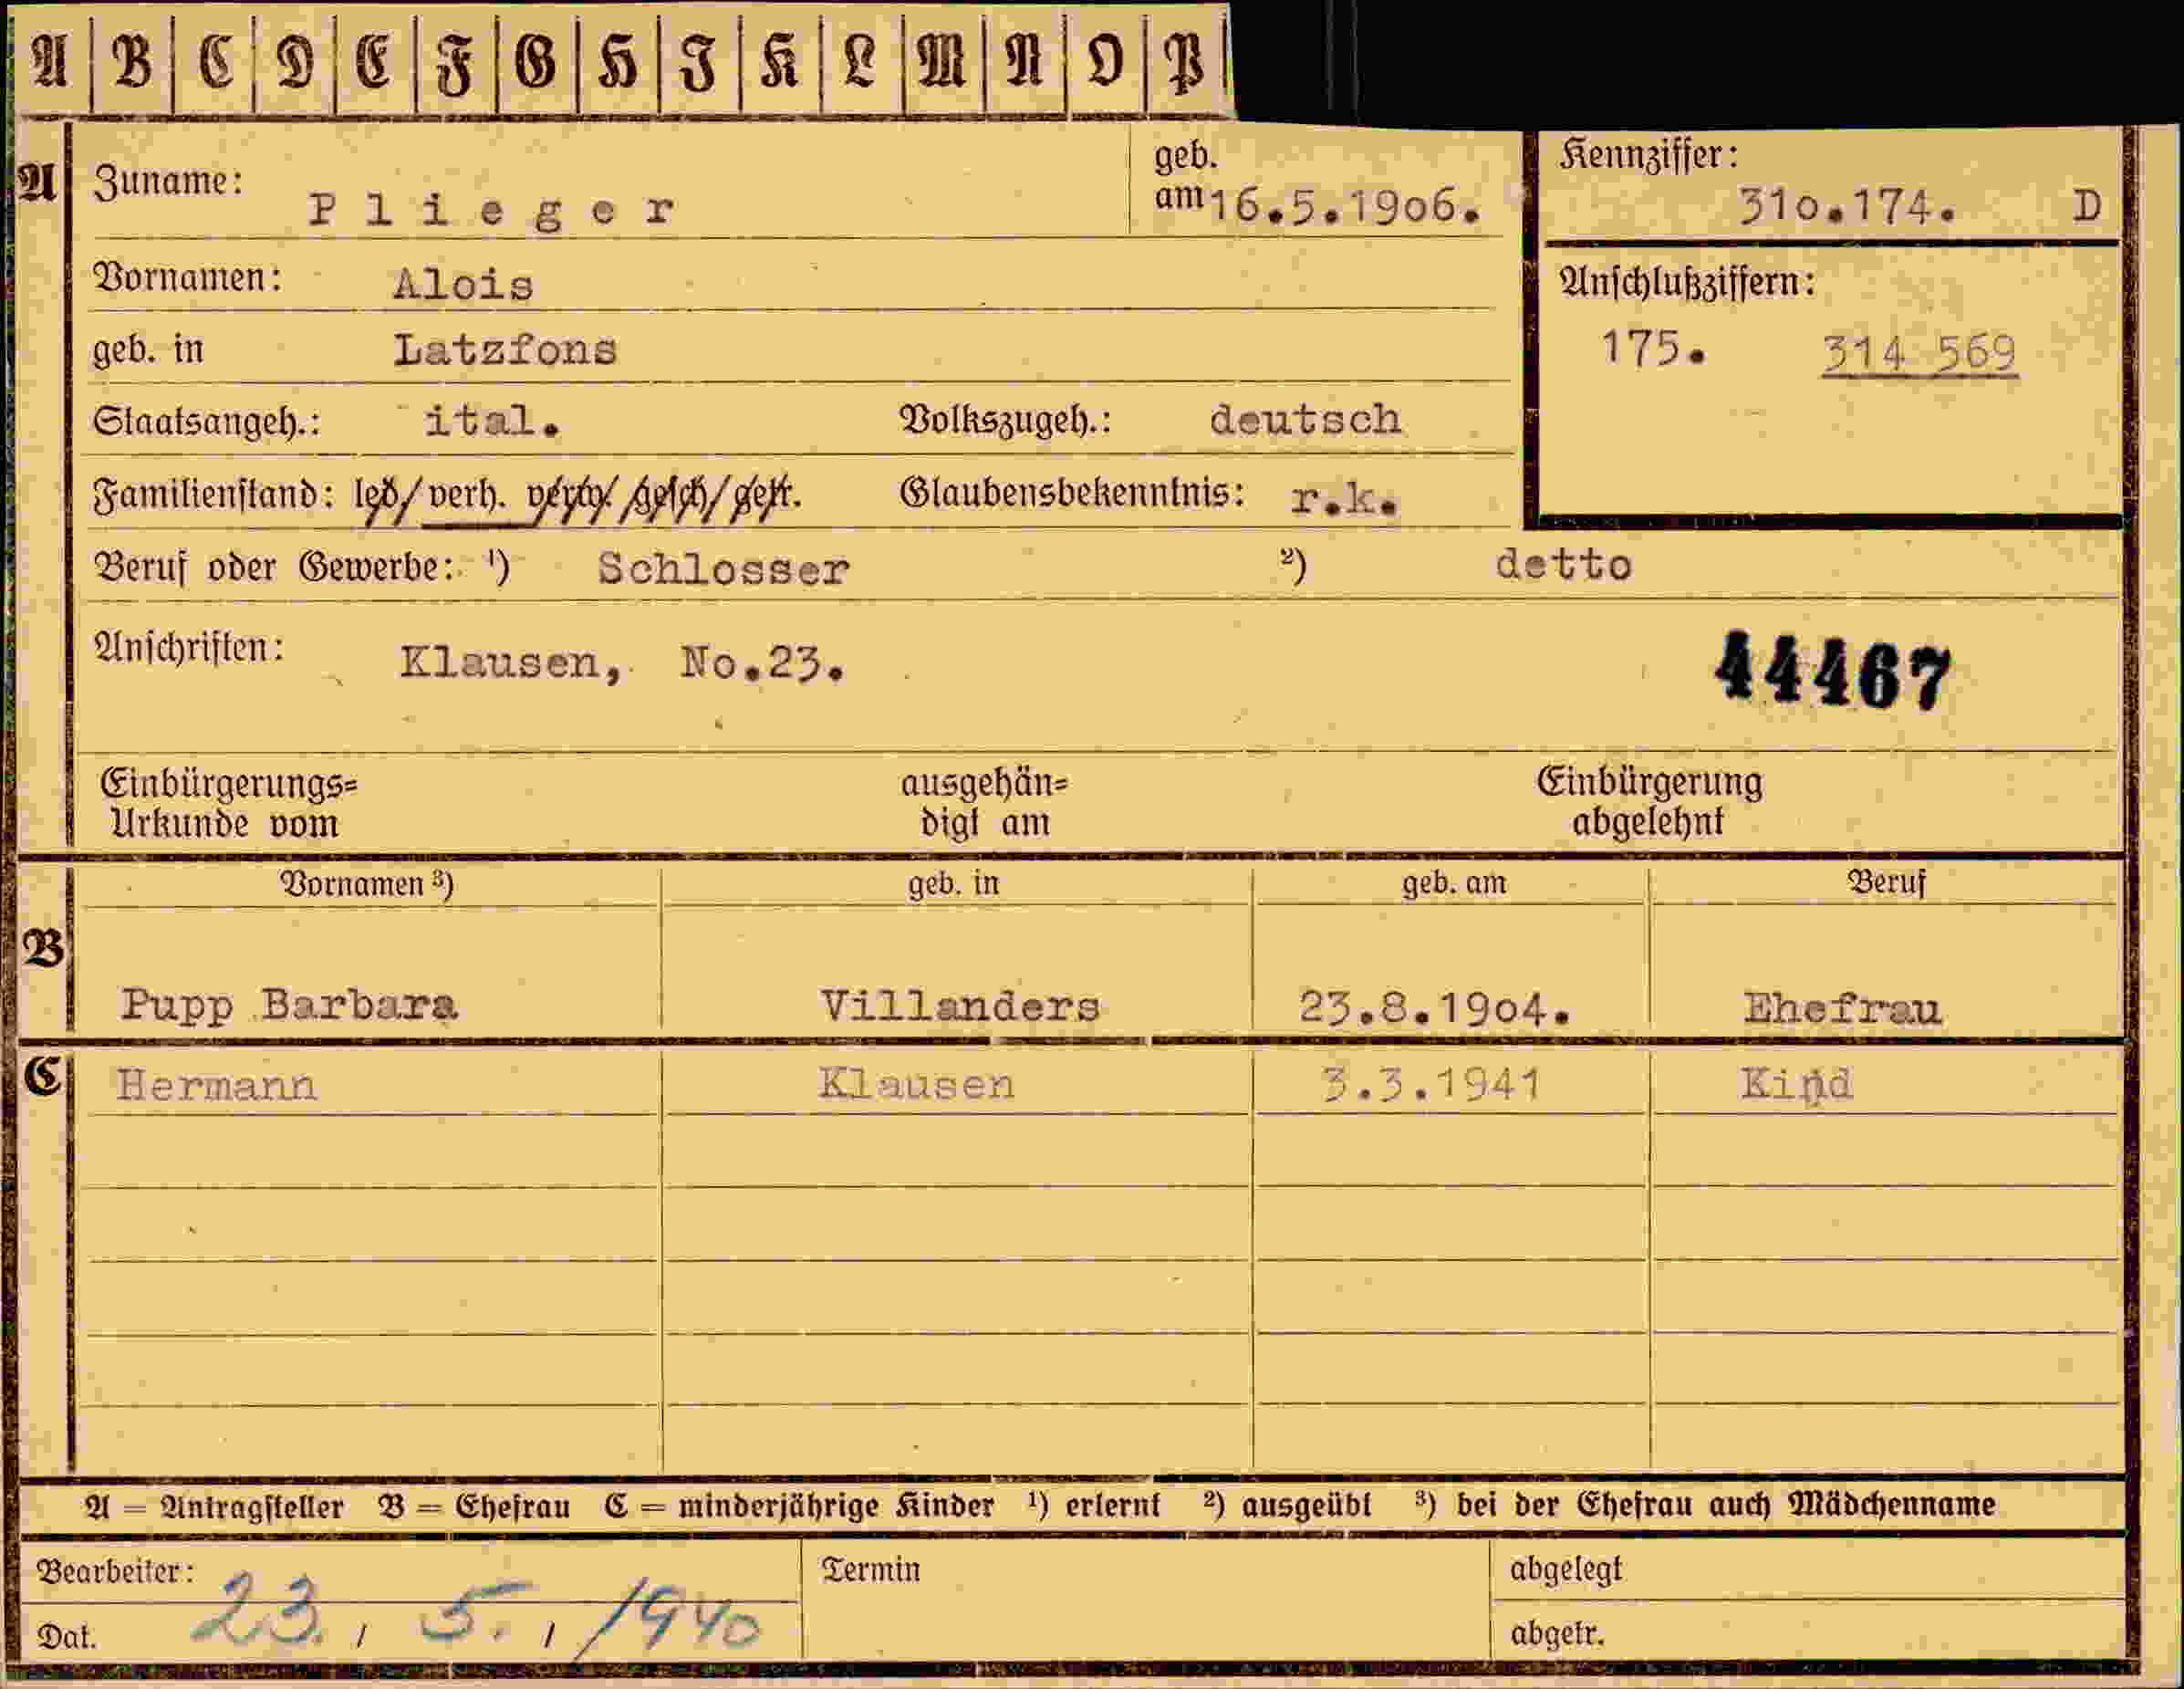 A B C D E F G H I K L M N O P
A Zuname: Plieger geb. am 16.5.1906. Kennziffer: 310.174. D
Vornamen: Alois Anschlußziffern:
geb. in Latzfons 175. 314 569
Staatsangeh.: ital. Volkszugeh.: deutsch
Familienstand: led/ verh. verw/ gesch/ getr. Glaubensbekenntnis: r.k.
Beruf oder Gewerbe: ¹) Schlosser ²) detto
Anschriften: Klausen, No.23. 44467
Einbürgerungs= ausgehän= Einbürgerung
Urkunde vom digt am abgelehnt
Vornamen ³) geb. in geb. am Beruf
B
Pupp Barbara Villanders 23.8.1904. Ehefrau
C Hermann Klausen 3.3.1941 Kind
A = Antragsteller B = Ehefrau C = minderjährige Kinder ¹) erlernt ²) ausgeübt ³) bei der Ehefrau auch Mädchenname
Bearbeiter: Termin abgelegt
Dat. 23. / 5. / 1940 abgetr.